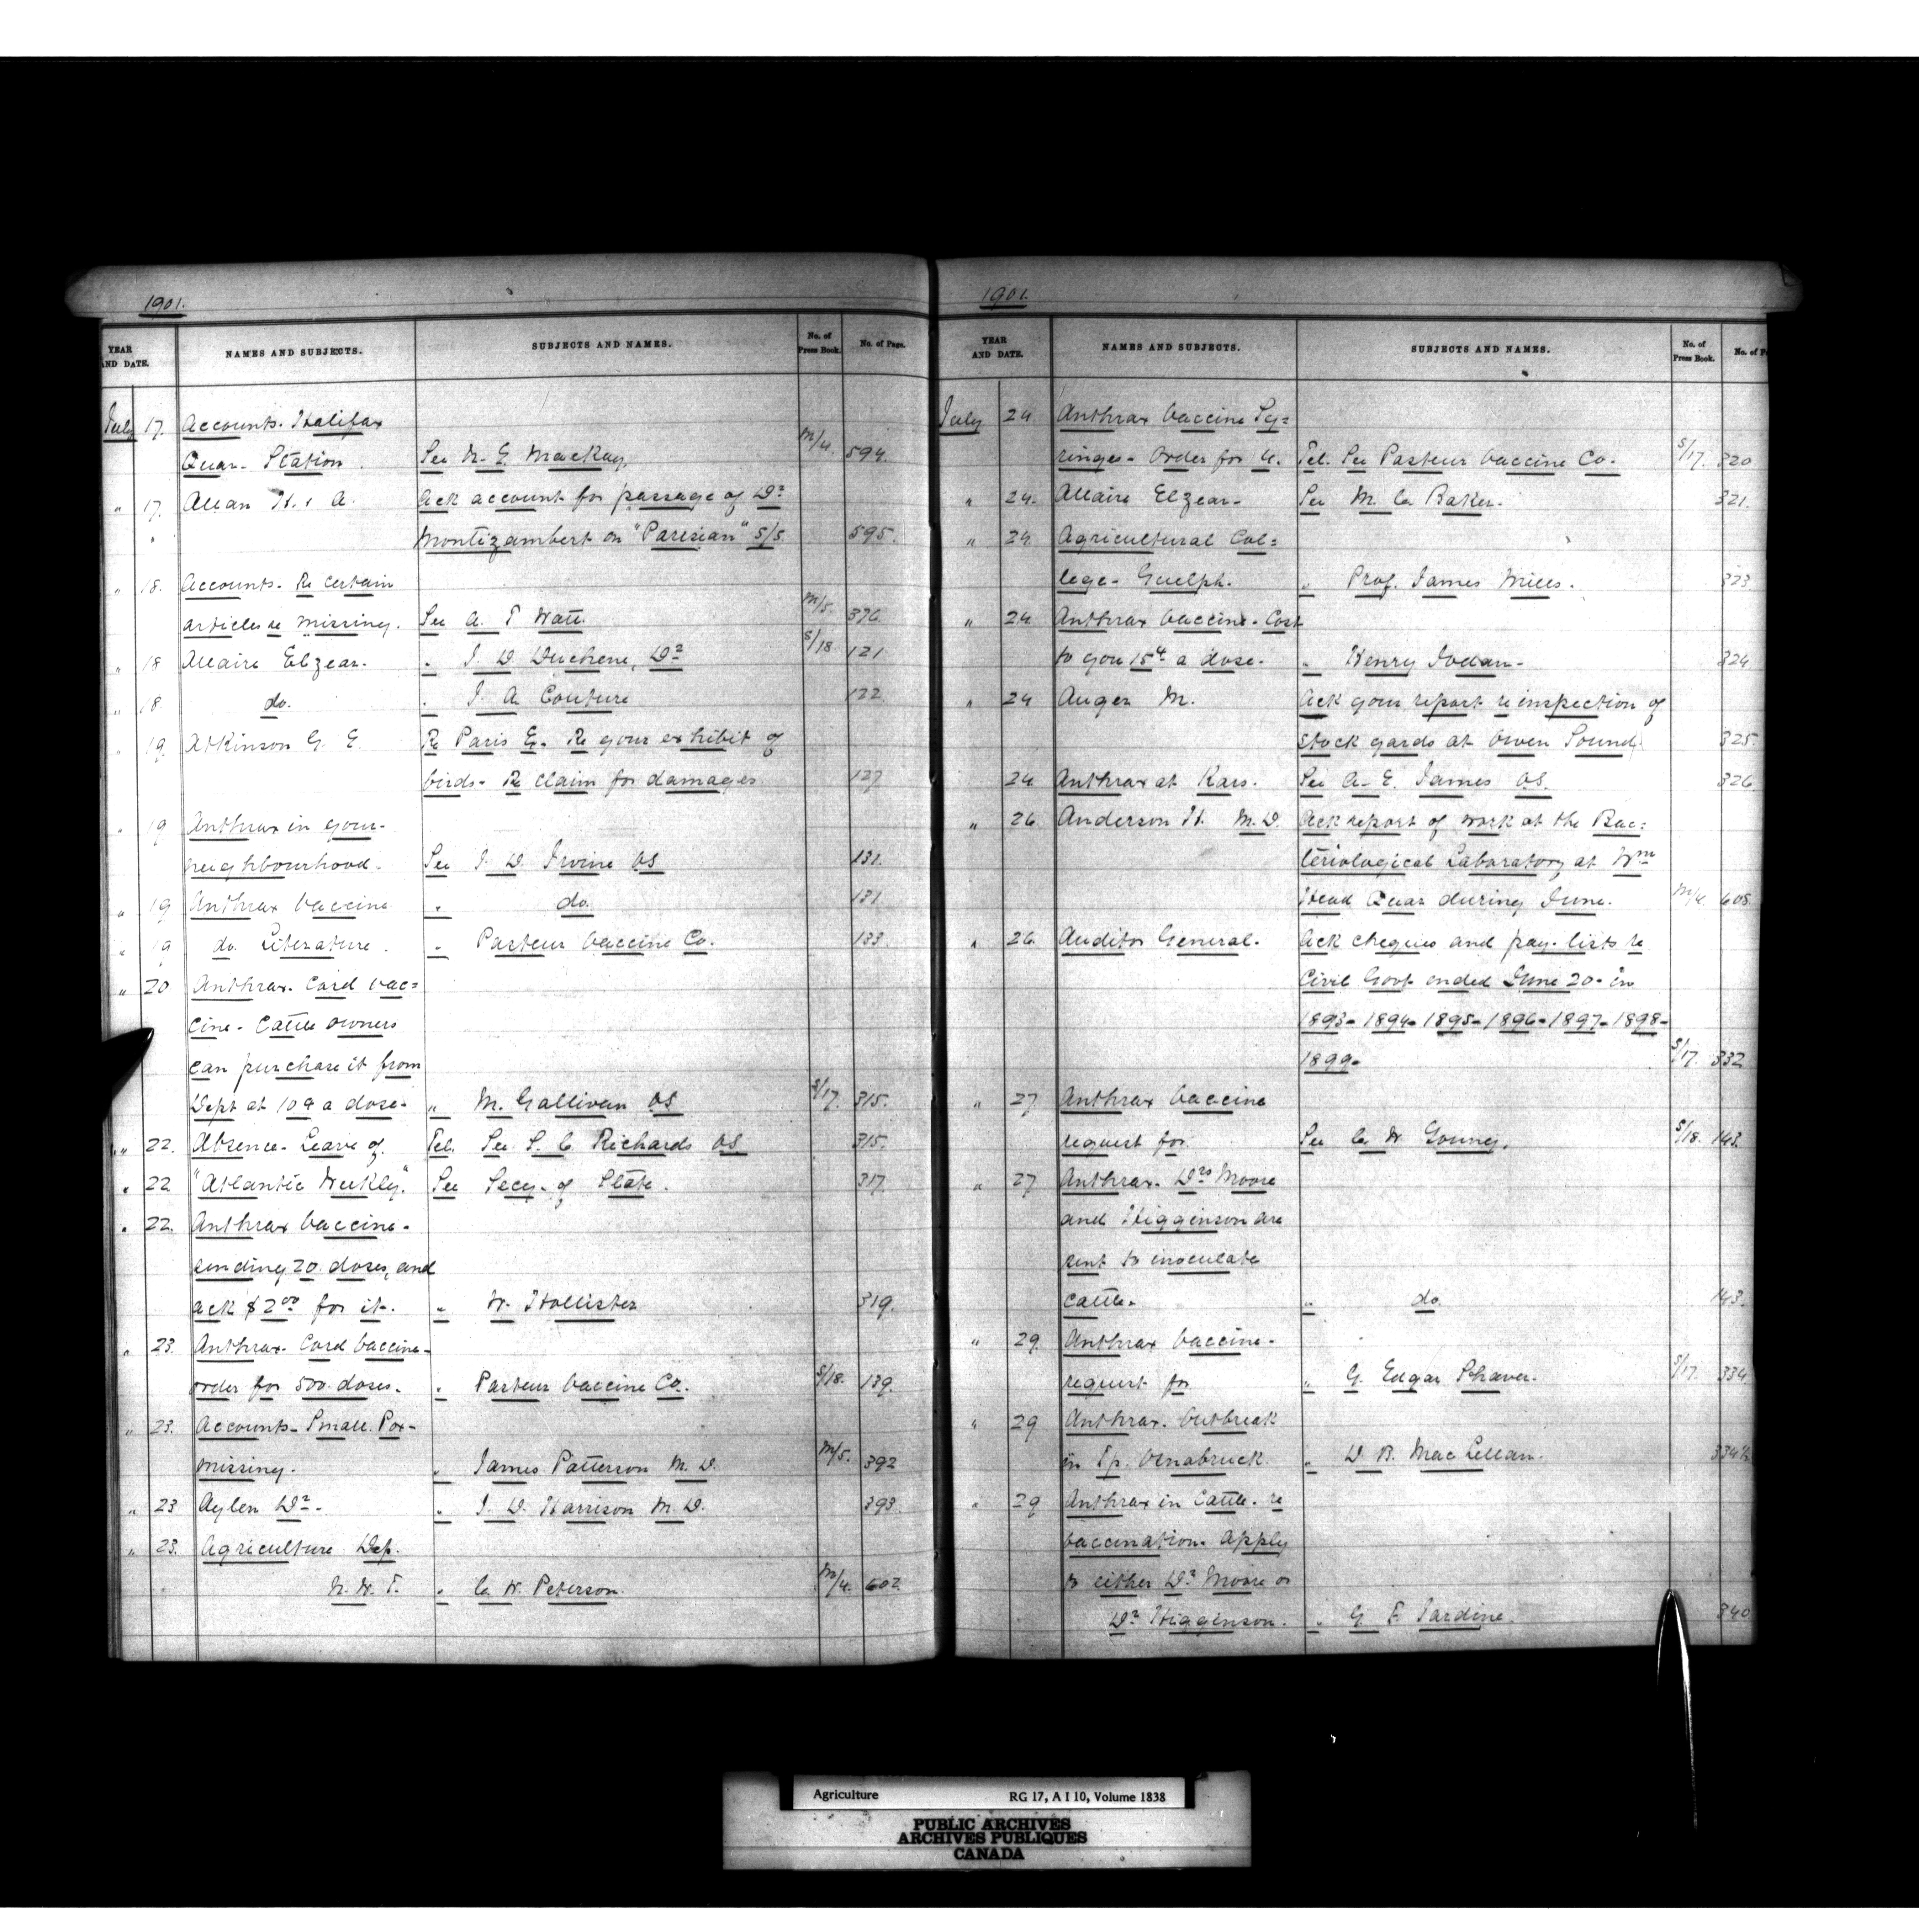 1901.
YEAR AND DATE. NAMES AND SUBJECTS. SUBJECTS AND NAMES. No. of Press Book. No. of Page.
July 17. Accounts. Halifax
Quar. Station. See N. E. MacKay, M/4. 594.
" 17. Allan H. & A. Ack account for passage of Dr
" Montizambert on "Parisian" S/S. 595.
" 18. Accounts. Re certain
articles re missing. See A. T Watt. M/5. 376.
" 18 Allaire Elzear. " J. D. Duchene, Dr S/18. 121
" 18 do. " J. A. Couture 122.
" 19. Atkinson G. E. Re Paris E. Re your exhibit of
birds- Re claim for damages 127
" 19 Anthrax in your-
neighbourhood. See J. D. Irvine VS 131.
" 19 Anthrax Vaccine " do. 131.
" 19 do. Literature. " Pasteur Vaccine Co. 133.
" 20 Anthrax. Cord vac=
cine- Cattle owners
can purchase it from
Dept at 10¢ a dose- " M. Gallivan VS S/17. 315.
" 22. Absence- Leave of. Tel. See S. C. Richards VS. 315.
" 22 "Atlantic Weekly". See Secy. of State. 317.
" 22. Anthrax Vaccine-
sending 20 doses, and
ack $2.00 for it. " W. Hollister 319.
" 23. Anthrax- Cord Vaccine-
order for 500 doses. " Pasteur Vaccine Co. S/18. 139.
" 23. Accounts- Small. Pox-
missing. " James Patterson M. D. M/5. 392
" 23 Aylen Dr. " J. D. Harrison M. D. 393.
" 23. Agriculture Dep.
N. W. T. " C. W. Peterson. M/4. 602.
1901.
YEAR AND DATE. NAMES AND SUBJECTS. SUBJECTS AND NAMES. No. of Press Book. No. of P
July 24 Anthrax Vaccine Sy=
ringes- Order for 4. Tel. See Pasteur Vaccine Co. S/17. 320
" 24. Allaire Elzear- See M. C. Baker. 321.
" 24. Agricultural Col=
lege- Guelph. " Prof. James Mills. 323
" 24. Anthrax Vaccine- Cost
to you 15¢ a dose- " Henry Jodan- 324
" 24 Auger M. Ack your report re inspection of
stock yards at Owen Sound. 325.
24. Anthrax at Kars. See C. E. James VS. 326
" 26 Anderson H. M. D. Ack report of work at the Bac=
teriological Laboratory at Wm
Head Quar during June. M/4 608
" 26. Auditor General. Ack cheques and pay-lists re
Civil Govt ended June 20- in
1893- 1894- 1895- 1896- 1897- 1898-
1899- S/17. 332
" 27 Anthrax Vaccine
request for. See C. W Young. S/18. 143.
" 27 Anthrax. Drs Moore
and Higginson are
sent to inoculate
cattle- " do. 143.
" 29. Anthrax Vaccine-
request for " G. Edgar Shaver. S/17. 334.
" 29 Anthrax. Outbreak
in Tp. Osnabruck. " D. B. MacLellan. 334½
" 29 Anthrax in Cattle- re
vaccination. Apply
to either Dr Moore or
Dr Higginson. " G. F. Jardine. 340
Agriculture RG 17, A I 10, Volume 1838
PUBLIC ARCHIVES
ARCHIVES PUBLIQUES
CANADA